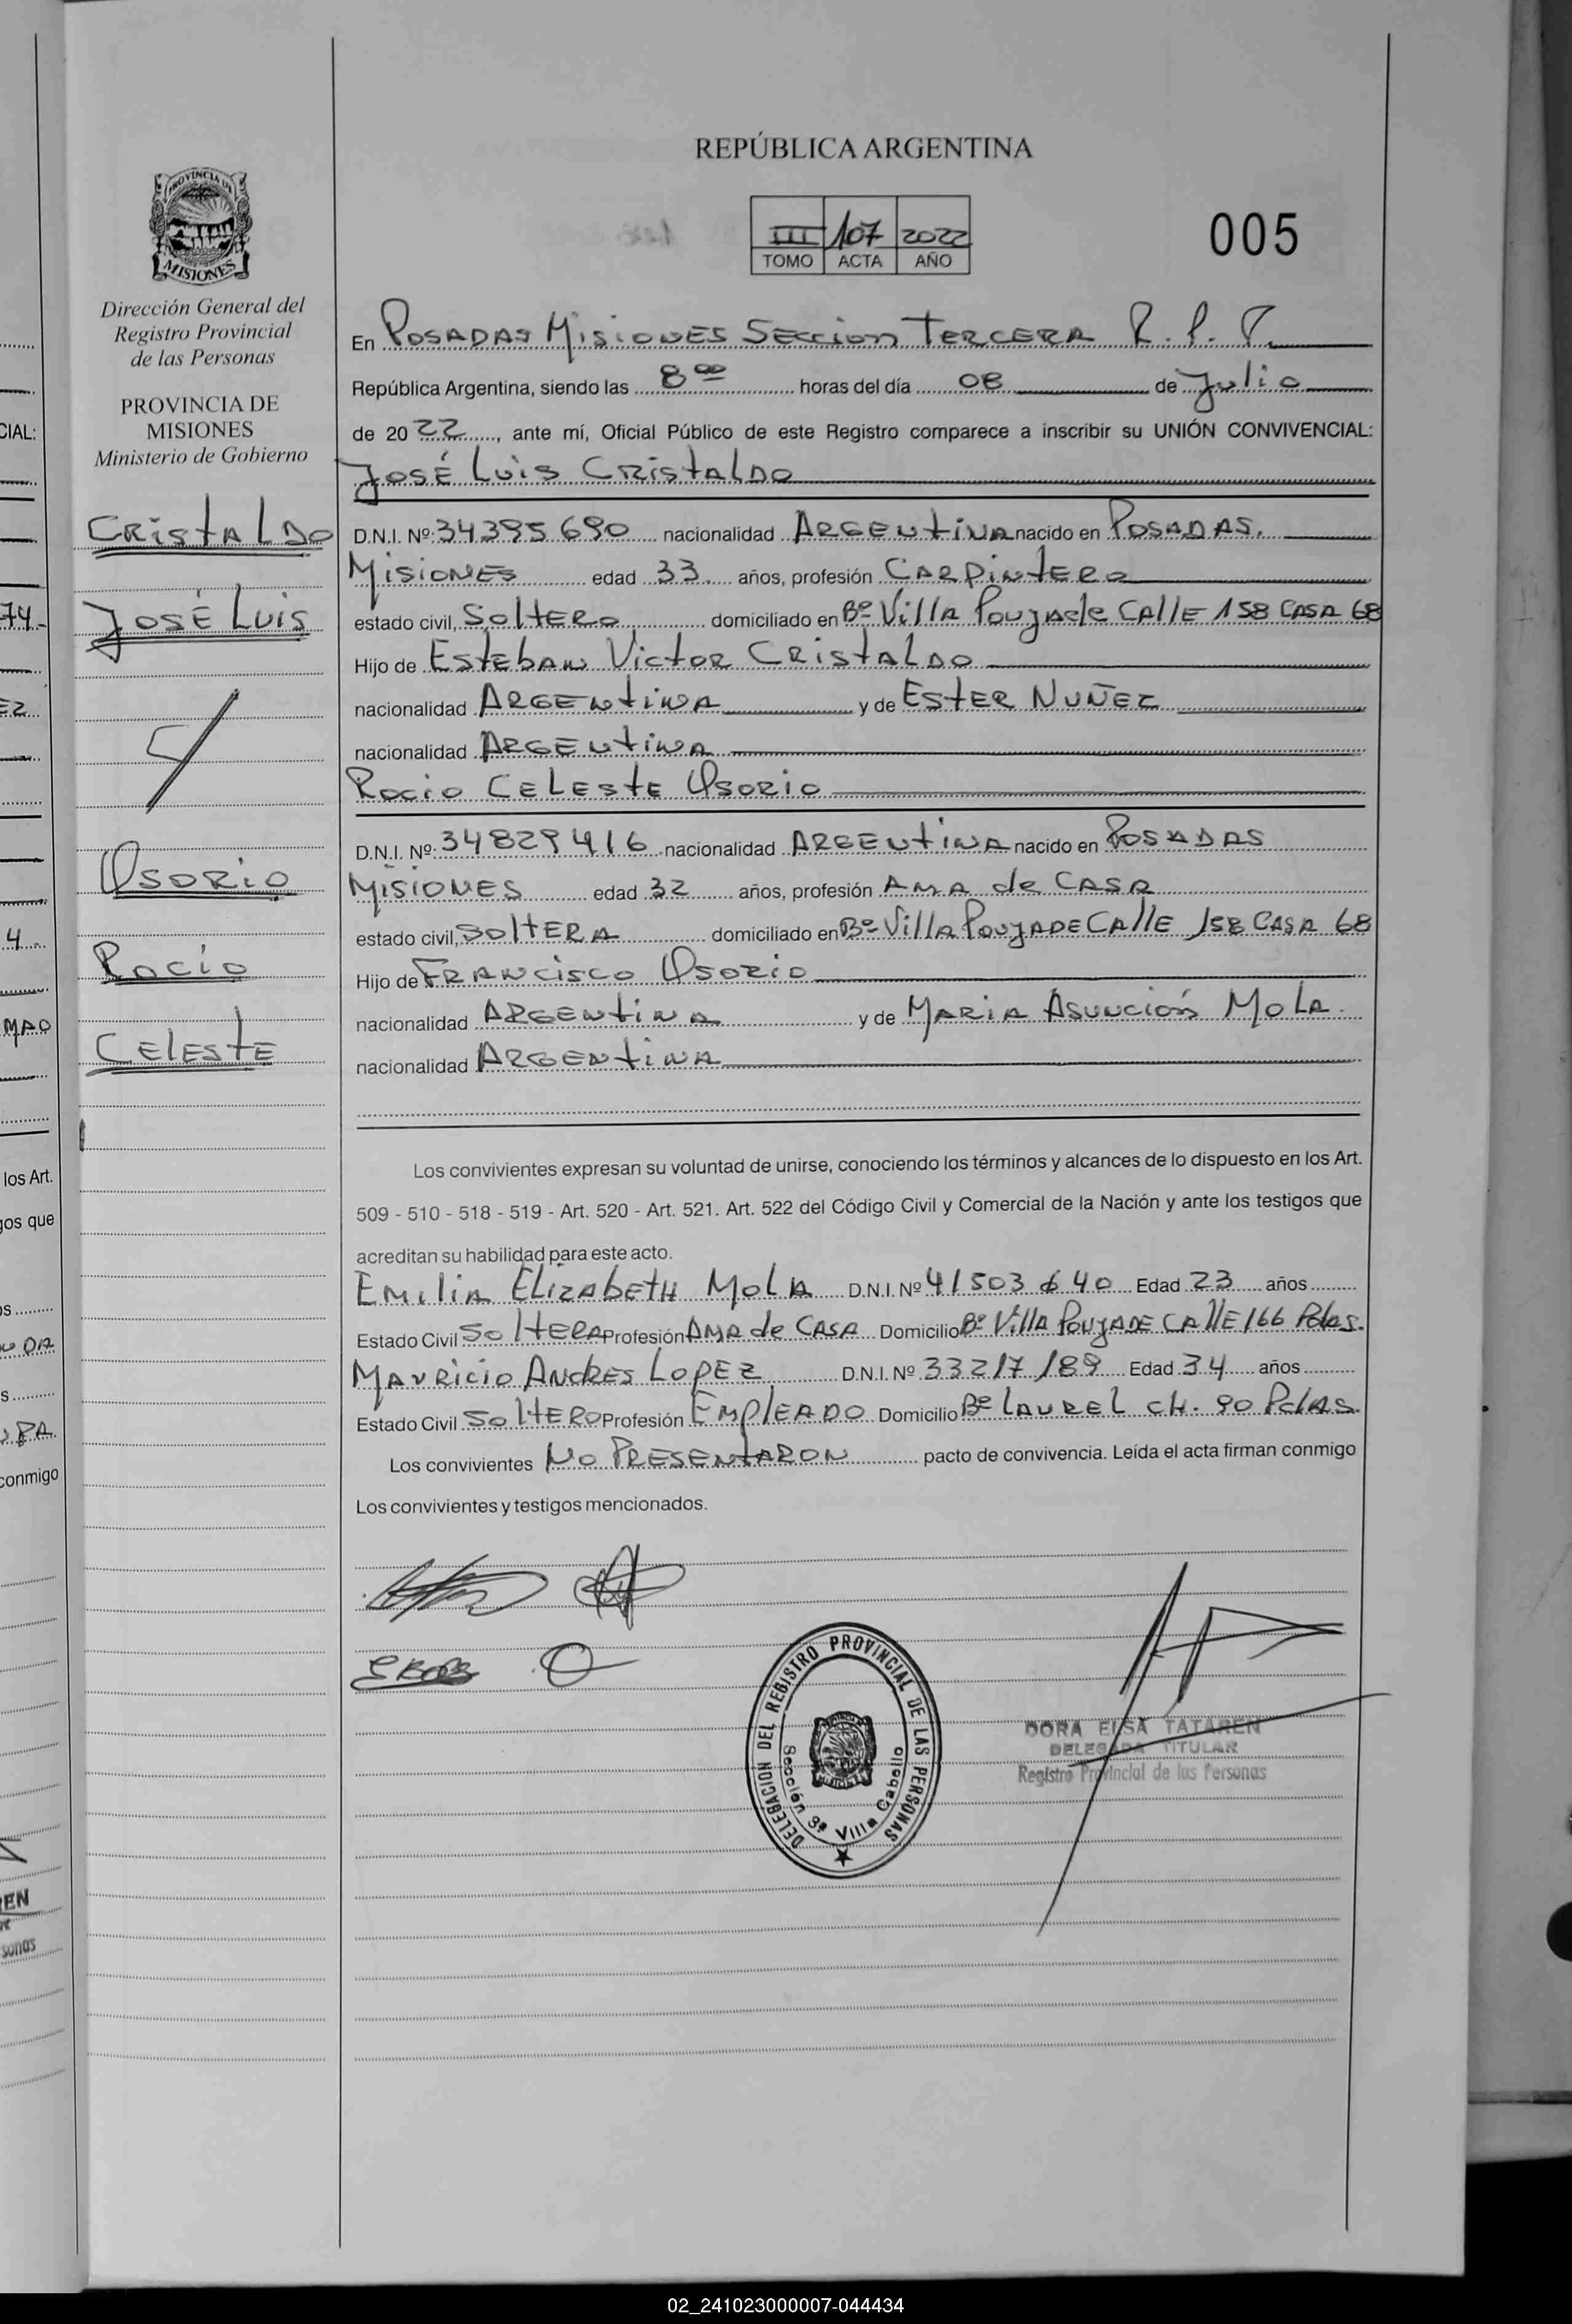 REPÚBLICA ARGENTINA
III 107 2022
TOMO ACTA AÑO
005
PROVINCIA DE
MISIONES
Dirección General del
Registro Provincial
de las Personas
PROVINCIA DE
MISIONES
Ministerio de Gobierno
CRISTALDO
JOSÉ LUIS
OSORIO
ROCIO
CELESTE
En POSADAS MISIONES SECCION TERCERA R. P. P.
República Argentina, siendo las 8 00 horas del día 08 de Julio
de 20 22, ante mí, Oficial Público de este Registro comparece a inscribir su UNIÓN CONVIVENCIAL:
JOSÉ LUIS CRISTALDO
D.N.I. Nº 34395690 nacionalidad ARGENTINA nacido en POSADAS.
MISIONES edad 33 años, profesión CARPINTERO
estado civil, SOLTERO domiciliado en Bº Villa Poujade CALLE 158 CASA 68
Hijo de ESTEBAN VICTOR CRISTALDO
nacionalidad ARGENTINA y de ESTER NUÑEZ
nacionalidad ARGENTINA
ROCIO CELESTE OSORIO
D.N.I. Nº 34829416 nacionalidad ARGENTINA nacido en POSADAS
MISIONES edad 32 años, profesión AMA de CASA
estado civil, SOLTERA domiciliado en Bº Villa POUJADE CALLE 158 CASA 68
Hijo de FRANCISCO OSORIO
nacionalidad ARGENTINA y de MARIA ASUNCIÓN MOLA.
nacionalidad ARGENTINA
Los convivientes expresan su voluntad de unirse, conociendo los términos y alcances de lo dispuesto en los Art.
509 - 510 - 518 - 519 - Art. 520 - Art. 521. Art. 522 del Código Civil y Comercial de la Nación y ante los testigos que
acreditan su habilidad para este acto.
EMILIA ELIZABETH MOLA D.N.I. Nº 41503640 Edad 23 años
Estado Civil SOLTERA Profesión AMA de CASA Domicilio Bº Villa POUJADE CALLE 166 Pdas.
MAURICIO ANDRES LOPEZ D.N.I. Nº 33217189 Edad 34 años
Estado Civil SOLTERO Profesión EMPLEADO Domicilio Bº LAUREL CH. 90 PdAS.
Los convivientes NO PRESENTARON pacto de convivencia. Leída el acta firman conmigo
Los convivientes y testigos mencionados.
DELEGACION DEL REGISTRO PROVINCIAL DE LAS PERSONAS
Sección 3ª Villa Cabello
DORA ELSA TATAREN
DELEGADA TITULAR
Registro Provincial de las Personas
CIAL:
74.-
EZ
4.-
los Art.
gos que
conmigo
02_241023000007-044434